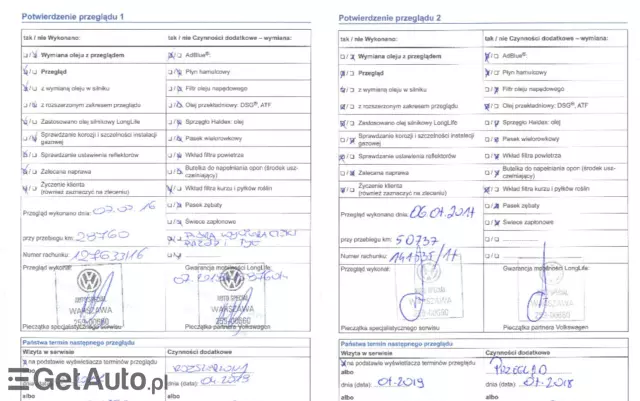 Potwierdzenie przeglądu 1
tak / nie Wykonano:
tak / nie Czynności dodatkowe – wymiana:
Wymiana oleju z przeglądem
AdBlue®:
Przegląd
Płyn hamulcowy
z wymianą oleju w silniku
Filtr oleju napędowego
z rozszerzonym zakresem przeglądu
Olej przekładniowy: DSG®, ATF
Zastosowano olej silnikowy LongLife
Sprzęgło Haldex: olej
Sprawdzanie korozji i szczelności instalacji gazowej
Pasek wielorowkowy
Sprawdzanie ustawienia reflektorów
Wkład filtra powietrza
Zalecana naprawa
Butelka do napełniania opon (środek uszczelniający)
Życzenie klienta
(również zaznaczyć na zleceniu)
Wkład filtra kurzu i pyłków roślin
Pasek zębaty
Przegląd wykonano dnia:
Świece zapłonowe
przy przebiegu km: 28760
Numer rachunku:
Przegląd wykonał:
Gwarancja mobilności LongLife:
AUTO SPECIAL
WARSZAWA
259-00560
AUTO SPECIAL
WARSZAWA
259-00560
Pieczątka specjalistycznego serwisu
Pieczątka partnera Volkswagen
Państwa termin następnego przeglądu
Wizyta w serwisie
Czynności dodatkowe
na podstawie wyświetlacza terminów przeglądu
albo
dnia (data):
dnia (data): 04.2019
albo
albo
Potwierdzenie przeglądu 2
tak / nie Wykonano:
tak / nie Czynności dodatkowe – wymiana:
Wymiana oleju z przeglądem
AdBlue®:
Przegląd
Płyn hamulcowy
z wymianą oleju w silniku
Filtr oleju napędowego
z rozszerzonym zakresem przeglądu
Olej przekładniowy: DSG®, ATF
Zastosowano olej silnikowy LongLife
Sprzęgło Haldex: olej
Sprawdzanie korozji i szczelności instalacji gazowej
Pasek wielorowkowy
Sprawdzanie ustawienia reflektorów
Wkład filtra powietrza
Zalecana naprawa
Butelka do napełniania opon (środek uszczelniający)
Życzenie klienta
(również zaznaczyć na zleceniu)
Wkład filtra kurzu i pyłków roślin
Pasek zębaty
Przegląd wykonano dnia: 06.07.2017
Świece zapłonowe
przy przebiegu km: 50737
Numer rachunku:
Przegląd wykonał:
Gwarancja mobilności LongLife:
AUTO SPECIAL
WARSZAWA
259-00560
AUTO SPECIAL
WARSZAWA
259-00560
Pieczątka specjalistycznego serwisu
Pieczątka partnera Volkswagen
Państwa termin następnego przeglądu
Wizyta w serwisie
Czynności dodatkowe
na podstawie wyświetlacza terminów przeglądu
PRZEGLĄD
albo
dnia (data): 07.2019
dnia (data): 07.2018
albo
albo
GetAuto.pl